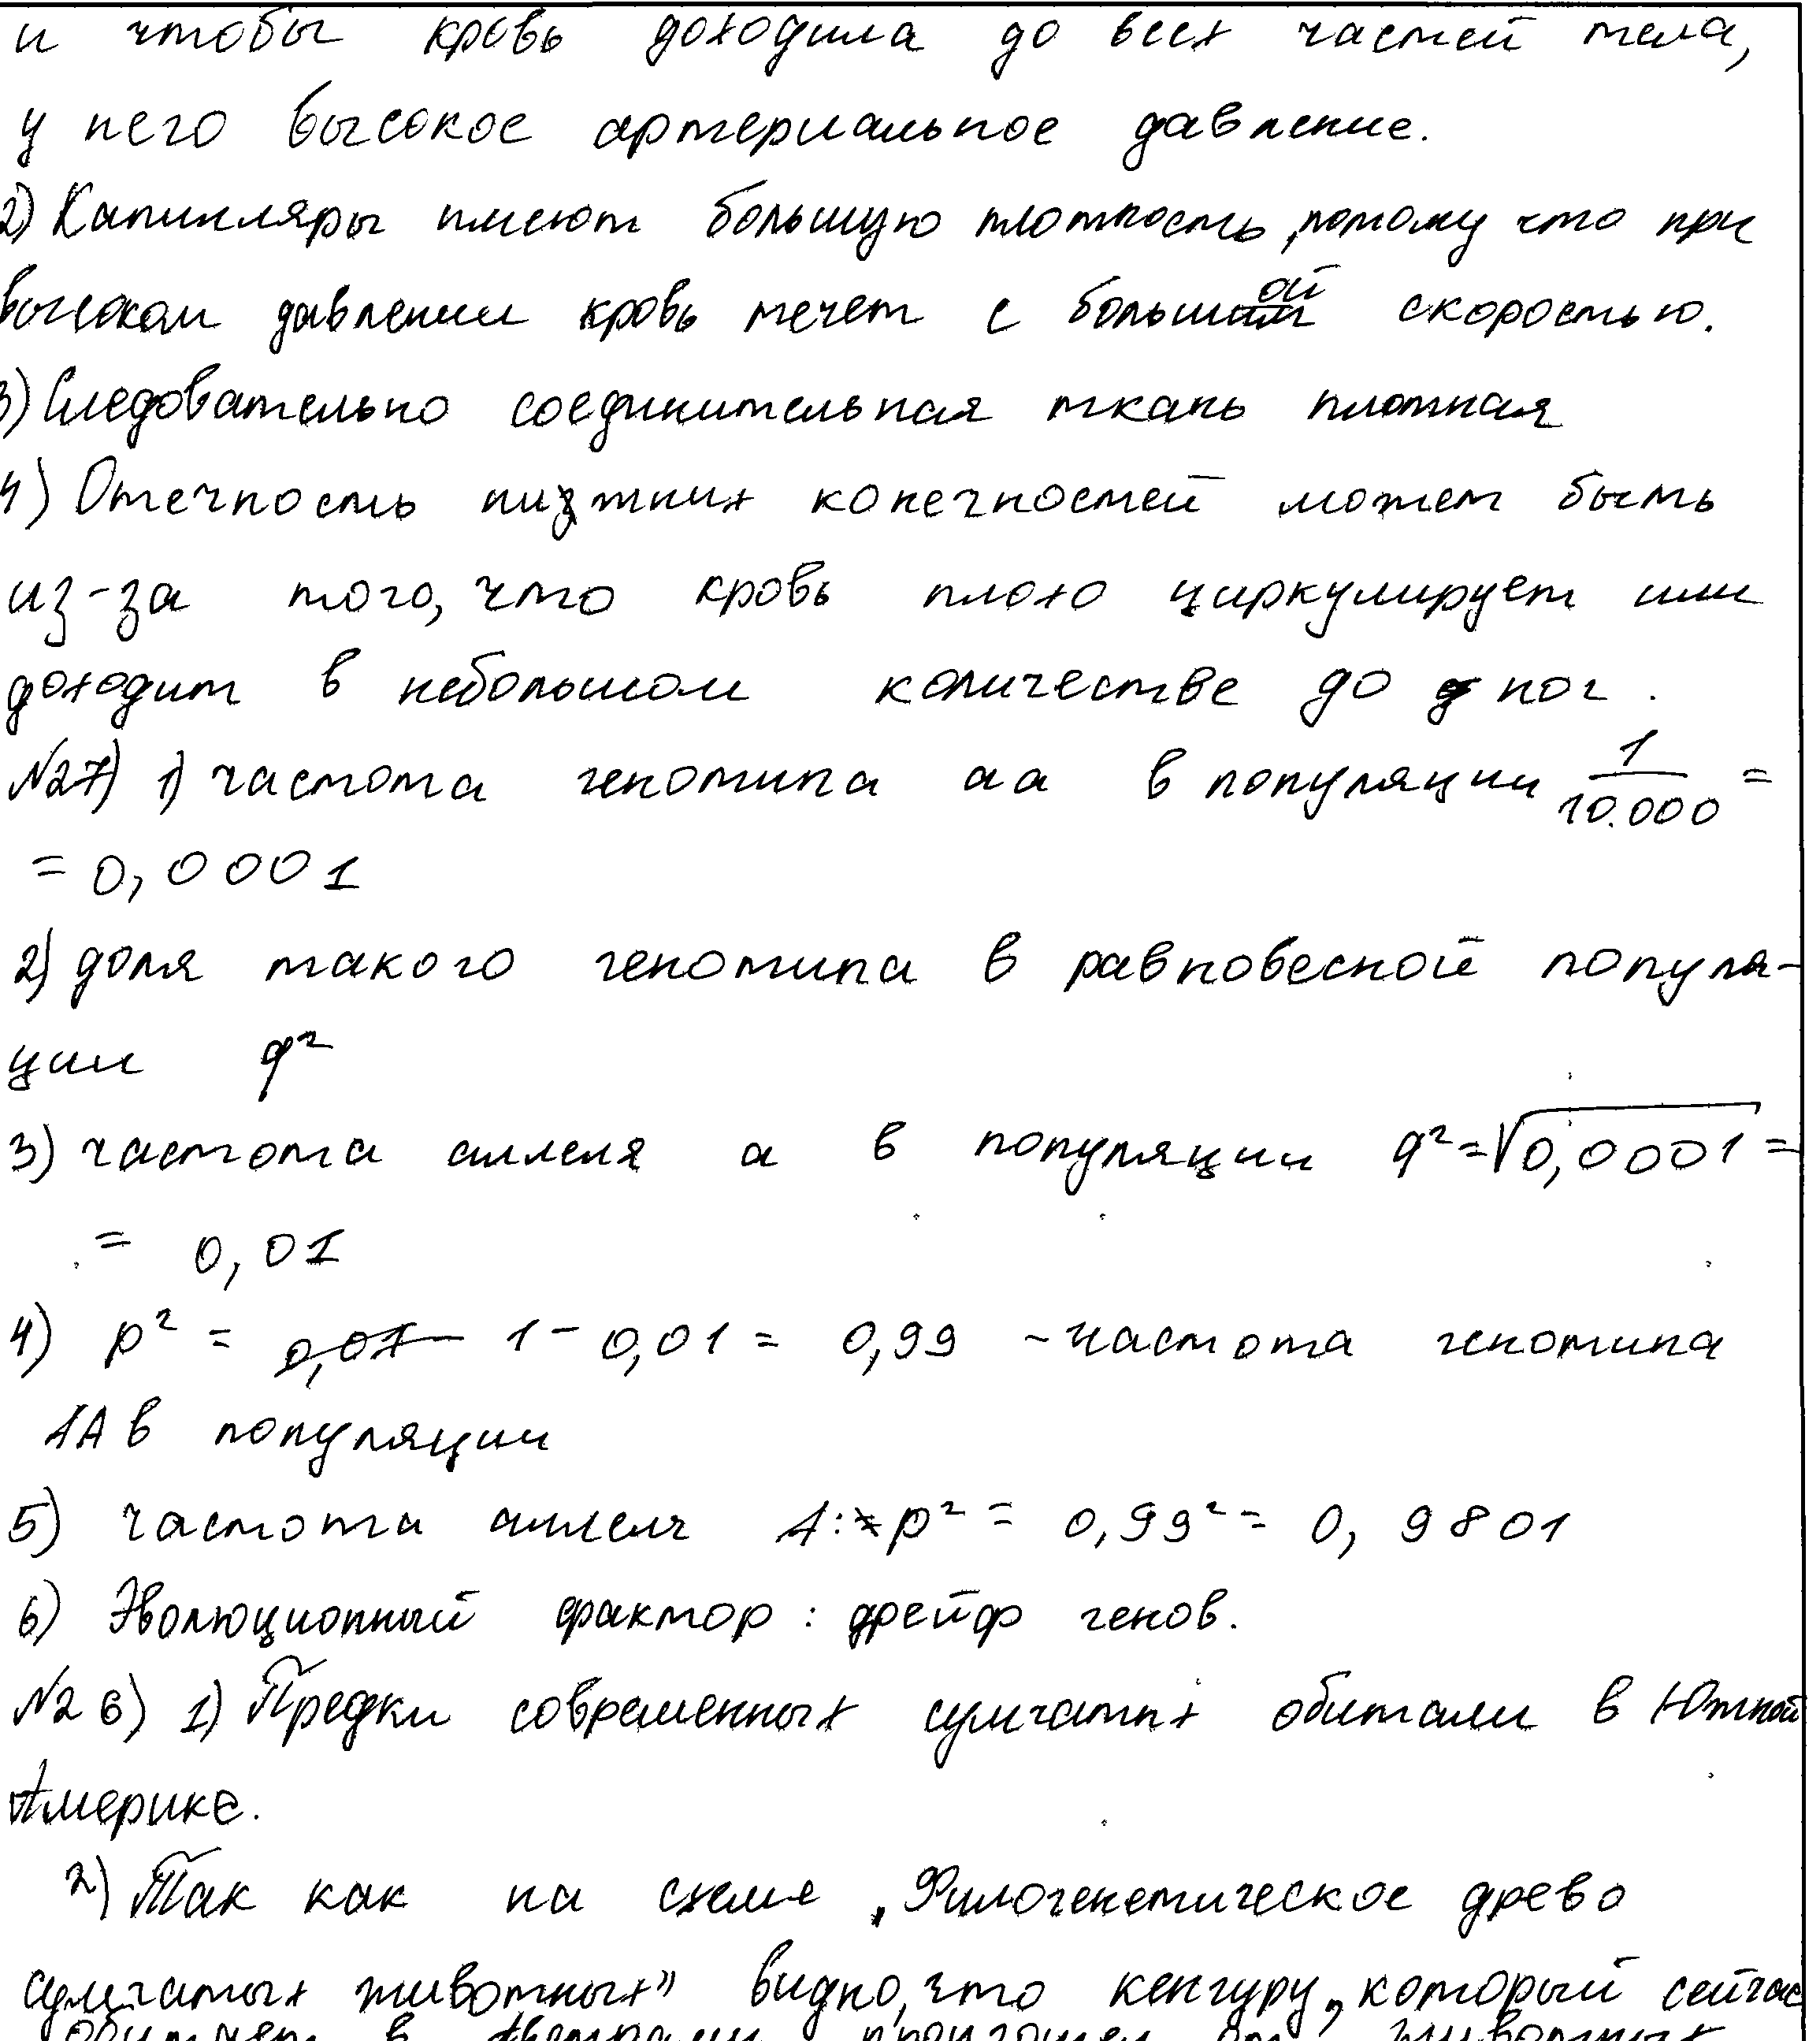 и чтобы кровь доходила до всех частей тела,
у него высокое артериальное давление.
2) Капилляры имеют большую плотность, потому что при
высоком давлении кровь течет с большой скоростью.
3) Следовательно соединительная ткань плотная
4) Отечность нижних конечностей может быть
из-за того, что кровь плохо циркулирует или
доходит в небольшом количестве до ног.
№27) 1) частота генотипа аа в популяции 1/10.000 =
= 0,0001
2) доля такого генотипа в равновесной популя-
ции q²
3) частота аллеля а в популяции q²=√0,0001 =
= 0,01
4) p² = 1 - 0,01 = 0,99 - частота генотипа
АА в популяции
5) частота аллеля А: p² = 0,99² = 0,9801
6) Эволюционный фактор: дрейф генов.
№26) 1) Предки современных сумчатых обитали в Южной
Америке.
2) Так как на схеме „Филогенетическое древо
сумчатых животных" видно, что кенгуру, который сейчас
обитает в Австралии произошел от животных